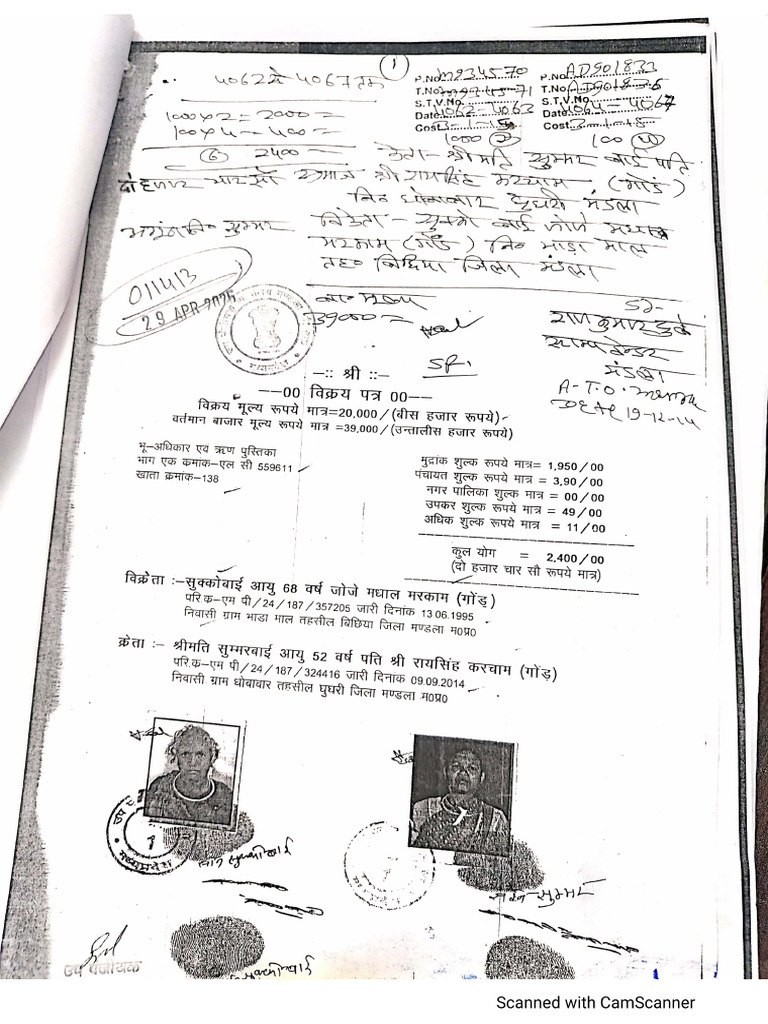 4062 से 4067 तक
1
P.No. M934570
T.No. M934571
S.T.V.No.
Date 4062-4063
Cost 3-1-15
1000 2
P.No. AD901833
T.No. AD901836
S.T.V.No.
Date 4064-4067
Cost 3-1-15
100 4
1000x2= 2000=
100x4= 400=
6 2400=
क्रेता- श्रीमति सुम्मर बाई पति
श्री रायसिंह करचाम (गोंड)
नि० धोबावार घुघरी मंडला
विक्रेता- सुक्को बाई जोजे मधाल
मरकाम (गोंड) नि० भाडा माल
तह० बिछिया जिला मंडला
011413
29 APR 2025
मध्यप्रदेश
39000=
राजकुमार दुबे
स्टाम्प वेन्डर
मंडला
19-12-14
-:: श्री ::-
--00 विक्रय पत्र 00--
विक्रय मूल्य रूपये मात्र=20,000/(बीस हजार रूपये)
वर्तमान बाजार मूल्य रूपये मात्र =39,000/(उन्तालीस हजार रूपये)
भू-अधिकार एव ऋण पुस्तिका
भाग एक कमांक-एल सी 559611
खाता कमांक-138
मुद्रांक शुल्क रूपये मात्र= 1,950/00
पंचायत शुल्क रूपये मात्र = 3,90/00
नगर पालिका शुल्क मात्र = 00/00
उपकर शुल्क रूपये मात्र = 49/00
अधिक शुल्क रूपये मात्र = 11/00
कुल योग = 2,400/00
(दो हजार चार सौ रूपये मात्र)
विक्रेता :-सुक्कोबाई आयु 68 वर्ष जोजे मधाल मरकाम (गोंड़)
परि.क-एम पी/24/187/357205 जारी दिनांक 13.06.1995
निवासी ग्राम भाडा माल तहसील बिछिया जिला मण्डला म0प्र0
क्रेता :- श्रीमति सुम्मरबाई आयु 52 वर्ष पति श्री रायसिंह करचाम (गोंड़)
परि.क-एम पी/24/187/324416 जारी दिनांक 09.09.2014
निवासी ग्राम धोबावार तहसील घुघरी जिला मण्डला म0प्र0
मध्यप्रदेश
सुक्कोबाई
सुम्मर
उप पंजीयक
सुक्कोबाई
Scanned with CamScanner